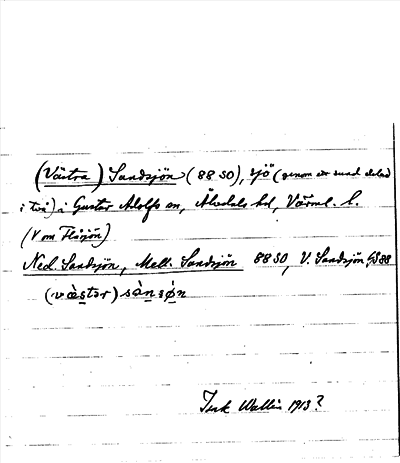 (Västra) Sandsjön (88 SO), sjö (genom ett sund delad
i två) i Gustav Adolfs sn, Älvdals hd, Värml. l.
(V om Flåsjön)
Ned. Sandsjön, Mell. Sandsjön 88 SO, V. Sandsjön GS88
(væ̀stər) sàn sǿn
Wallin 1913?